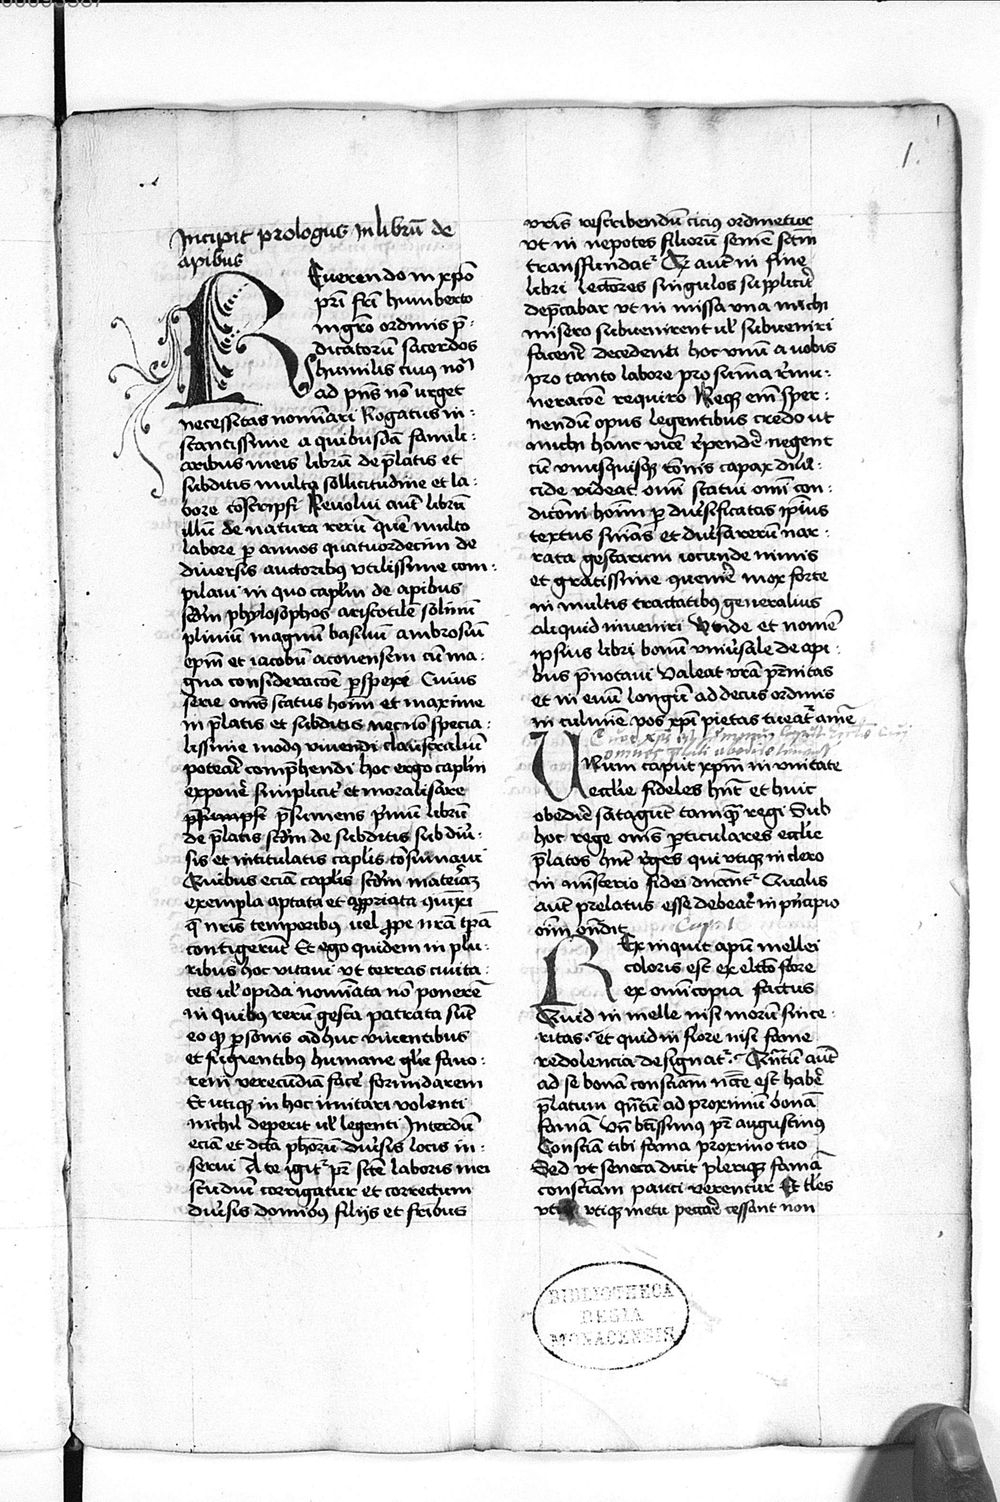 1.
Incipit prologus In librū de
apibus
Reuerendo in xp̄o
pr̄i fr̄i humberto
mgr̄o ordinis p̄-
dicatorū sacerdos
humilis cuius no͞
ad p̄ns nō urget
necessitas nominari Rogatus in-
stantissime a quibusdā famili-
aribus meis librū de p̄latis et
subditis multa sollicitudine et la-
bore cōscripsi Reuolui aut̄ librū
illū de natura rerū quē multo
labore p annos quatuordecim de
diuersis auctoribus vtilissime com-
pilaui in quo caplm̄ de apibus
scdm̄ phylosophos aristotilē solinū
pliniū magnū basiliū ambrosiū
epm̄ et iacobū aconensem cū ma-
gna consideracōe p̄spexi Cuius
serie om̄is status hoīm et maxime
in p̄latis et subditis necnō specia-
lissime modus viuendi claustraliū
potear̄ comp̄hendi hoc ergo caplm̄
expone͞r simplicit̄ et moralisare
p̄sumpsi p̄sumens p̄mū librū
de p̄latis scdm̄ de subditis sub diu-
sis et intitulatis caplis cōsumaui
Quibus eciā caplis scdm̄ materiaȝ
exempla aptata et appriata 9iūxi
q̄ nr̄is temporibus uel ꝓpe nr̄a tpā
contigerūt Et ego quidem in plu-
ribus hoc vitaui vt terras ciuita-
tes ul̄ opida nominata nō ponerē
in quibus rerū gesta patrata sūt
eo qꝫ p̄sonis adhuc viuentibus
et fugientibus humane glīe fauo-
rem verecūdiā face͞r formidarem
Et utiqꝫ in hoc imitari volenti
nichil deperit ul̄ legenti Interdū
eciā et dicta ph̄orū diuīsis locis in-
serui A te igit̄ pr̄ sctē laboris mei
studiū corrigatur et correctum
diuīsis domibꝫ filijs et frībus
vr̄is rescribendū cicius ordinetur
vt in nepotes filiorū semē sctm̄
transfundat̄ Ceȝ aut̄ in fine
libri lectores singulos supplicit̄
dep̄cabar vt in missa vna michi
misero subuenirent ul̄ subueniri
facerēt decedenti hoc vnū a uobis
pro tanto labore pro suma r̄mu-
neracōe requiro Neqꝫ em̄ sper-
nendū opus legentibus credo ut
michi hanc vicē r̄pende͞r negent
cū vnusquisqꝫ tōnis capax dilu-
cide videat omī statui omī con-
dicōni hoīm p diuīsificatas ip̄ius
textus snīas et diuīsa rerū nar-
rata gestarum iocunde nimis
et gratissime 9uenire mox forte
in multis tractatibꝫ generalius
aliquid inueniri Vnde et nomē
ipsius libri bonū vniūsale de api-
bus p̄notaui Valeat vr̄a pr̄nitas
et in euū longū ad decus ordinis
in culmīe vos xp̄i pietas tueat̄ amē
Vnum caput xpm̄ in vnitate
ecclīe fideles hn̄t et huic
obedire satagūt tamqꝫ regi Sub
hoc rege om̄is pticulares ecclīe
p̄latos hn̄t r̄ges qui vtiqꝫ in clero
in misterio fidei dn̄ant̄ Qualis
aut̄ prelatus esse debeat̄ in pn̄cipio
oīm on̄dit Cap. 1
Rex inquit apū mellei
coloris est ex electo flore
ex omī copia factus
Quid in melle nisi morū since-
ritas et quid in flore nisi fame
redolencia designat̄ Qn̄tū aut̄
ad se bonā consciam ncc̄e est habe͞r
p̄latum qn̄tū ad proximū bonā
famā Vn̄ bt̄issimus pr̄ augustinus
Consciā tibi fama proximo tuo
Sed vt seneca dicit pleriqꝫ famā
consciam pauci verentur Et tales
vtiqꝫ metu peccare cessant non
BIBLIOTHECA
REGIA
MONACENSIS